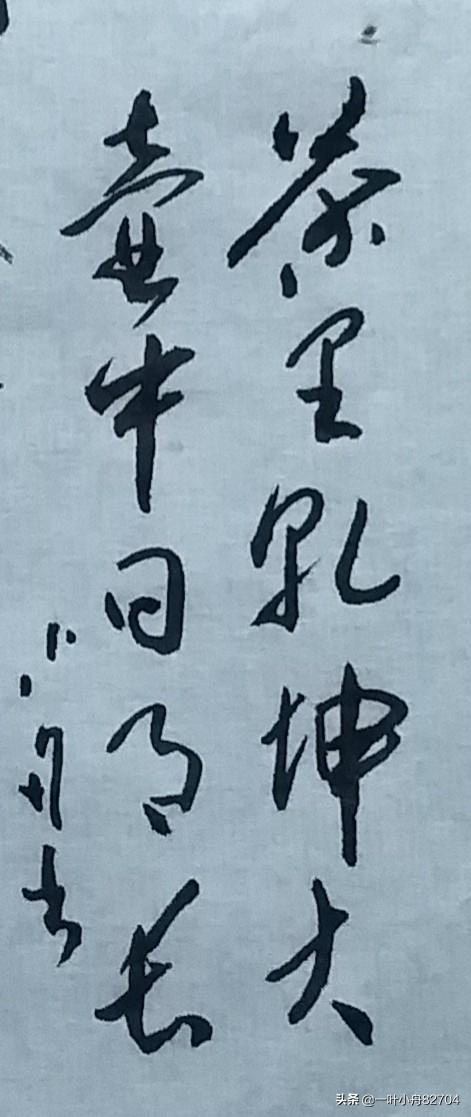 茶里乾坤大
壺中日月长
小舟书
头条 @一叶小舟82704